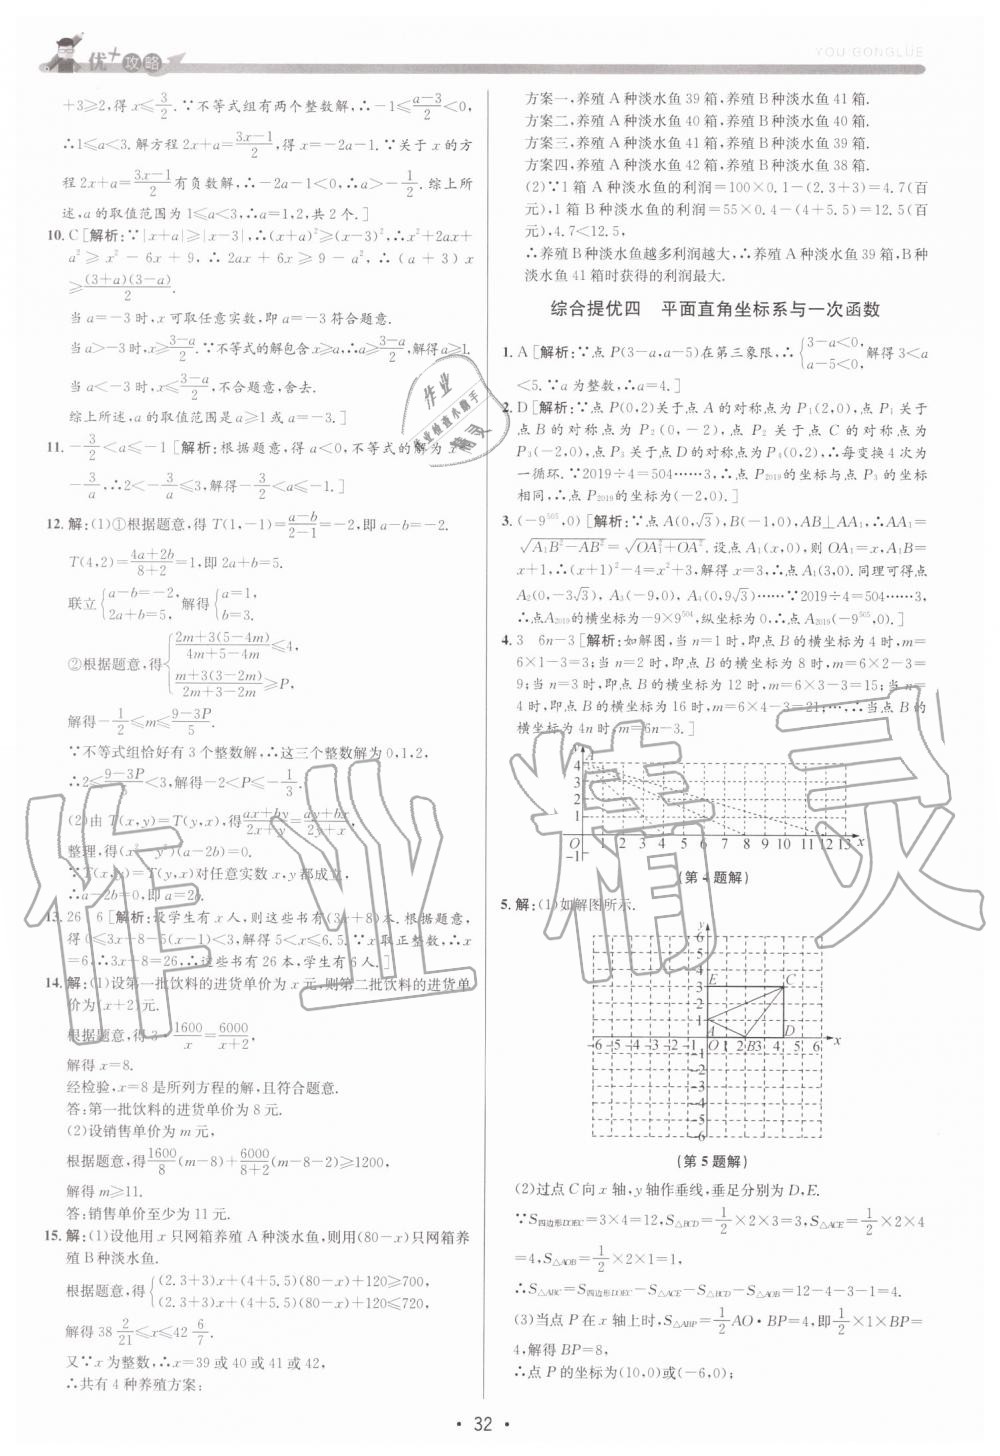 优+攻略
YOU GONGLÜE
+3≥2,得 x≤3/2.∵不等式组有两个整数解,∴-1≤(a-3)/2<0,
∴1≤a<3.解方程 2x+a=(3x-1)/2,得 x=-2a-1.∵关于 x 的方
程 2x+a=(3x-1)/2 有负数解,∴-2a-1<0,∴a>-1/2.综上所
述,a 的取值范围为 1≤a<3,∴a=1,2,共 2 个.]
10. C [解析:∵|x+a|≥|x-3|,∴(x+a)²≥(x-3)²,∴x²+2ax+
a²≥x²-6x+9,∴2ax+6x≥9-a²,∴(a+3)x
≥(3+a)(3-a)/2.
当 a=-3 时,x 可取任意实数,即 a=-3 符合题意.
当 a>-3 时,x≥(3-a)/2.∵不等式的解包含 x≥a,∴a≥(3-a)/2,解得 a≥1.
当 a<-3 时,x≤(3-a)/2,不合题意,舍去.
综上所述,a 的取值范围是 a≥1 或 a=-3.]
11. -3/2<a≤-1 [解析:根据题意,得 a<0,不等式的解为 x
-3/a,∴2<-3/a≤3,解得-3/2<a≤-1.]
12. 解:(1)①根据题意,得 T(1,-1)=(a-b)/(2-1)=-2,即 a-b=-2.
T(4,2)=(4a+2b)/(8+2)=1,即 2a+b=5.
联立{a-b=-2, 2a+b=5, 解得{a=1, b=3.
②根据题意,得{(2m+3(5-4m))/(4m+5-4m)≤4, (m+3(3-2m))/(2m+3-2m)≥P,
解得-1/2≤m≤(9-3P)/5.
∵不等式组恰好有 3 个整数解,∴这三个整数解为 0,1,2,
∴2≤(9-3P)/5<3,解得-2<P≤-1/3.
(2)由 T(x,y)=T(y,x),得(ax+by)/(2x+y)=(ay+bx)/(2y+x),
整理,得(x²-y²)(a-2b)=0.
∵T(x,y)=T(y,x)对任意实数 x,y 都成立,
∴a-2b=0,即 a=2b.
13. 26 6 [解析:设学生有 x 人,则这些书有(3x+8)本.根据题意,
得 0≤3x+8-5(x-1)<3,解得 5<x≤6.5.∵x 取正整数,∴x
=6,∴3x+8=26,∴这些书有 26 本,学生有 6 人.]
14. 解:(1)设第一批饮料的进货单价为 x 元,则第二批饮料的进货单
价为(x+2)元.
根据题意,得 3·1600/x=6000/(x+2),
解得 x=8.
经检验,x=8 是所列方程的解,且符合题意.
答:第一批饮料的进货单价为 8 元.
(2)设销售单价为 m 元,
根据题意,得1600/8(m-8)+6000/(8+2)(m-8-2)≥1200,
解得 m≥11.
答:销售单价至少为 11 元.
15. 解:(1)设他用 x 只网箱养殖 A 种淡水鱼,则用(80-x)只网箱养
殖 B 种淡水鱼.
根据题意,得{(2.3+3)x+(4+5.5)(80-x)+120≥700, (2.3+3)x+(4+5.5)(80-x)+120≤720,
解得 38 2/21≤x≤42 6/7.
又∵x 为整数,∴x=39 或 40 或 41 或 42,
∴共有 4 种养殖方案:
方案一,养殖 A 种淡水鱼 39 箱,养殖 B 种淡水鱼 41 箱.
方案二,养殖 A 种淡水鱼 40 箱,养殖 B 种淡水鱼 40 箱.
方案三,养殖 A 种淡水鱼 41 箱,养殖 B 种淡水鱼 39 箱.
方案四,养殖 A 种淡水鱼 42 箱,养殖 B 种淡水鱼 38 箱.
(2)∵1 箱 A 种淡水鱼的利润=100×0.1-(2.3+3)=4.7(百
元),1 箱 B 种淡水鱼的利润=55×0.4-(4+5.5)=12.5(百
元),4.7<12.5,
∴养殖 B 种淡水鱼越多利润越大,∴养殖 A 种淡水鱼 39 箱,B 种
淡水鱼 41 箱时获得的利润最大.
综合提优四 平面直角坐标系与一次函数
1. A [解析:∵点 P(3-a,a-5)在第三象限,∴{3-a<0, a-5<0, 解得 3<a
<5.∵a 为整数,∴a=4.]
2. D [解析:∵点 P(0,2)关于点 A 的对称点为 P₁(2,0),点 P₁ 关于
点 B 的对称点为 P₂(0,-2),点 P₂ 关于点 C 的对称点为
P₃(-2,0),点 P₃ 关于点 D 的对称点为 P₄(0,2),∴每变换 4 次为
一循环.∵2019÷4=504……3,∴点 P₂₀₁₉ 的坐标与点 P₃ 的坐标
相同,∴点 P₂₀₁₉ 的坐标为(-2,0).]
3. (-9⁵⁰⁵,0) [解析:∵点 A(0,√3),B(-1,0),AB⊥AA₁,∴AA₁=
√(A₁B²-AB²)=√(OA₁²+OA²).设点 A₁(x,0),则 OA₁=x,A₁B=
x+1,∴(x+1)²-4=x²+3,解得 x=3,∴点 A₁(3,0).同理可得点
A₂(0,-3√3),A₃(-9,0),A₄(0,9√3)……∵2019÷4=504……3,
∴点 A₂₀₁₉ 的横坐标为-9×9⁵⁰⁴,纵坐标为 0,∴点 A₂₀₁₉(-9⁵⁰⁵,0).]
4. 3 6n-3 [解析:如解图,当 n=1 时,即点 B 的横坐标为 4 时,m=
6×1-3=3;当 n=2 时,即点 B 的横坐标为 8 时,m=6×2-3=
9;当 n=3 时,即点 B 的横坐标为 12 时,m=6×3-3=15;当 n=
4 时,即点 B 的横坐标为 16 时,m=6×4-3=21;…,∴当点 B 的
横坐标为 4n 时,m=6n-3.]
y A 4 3 2 1 O -1 1 2 3 4 5 6 7 8 9 10 11 12 13 x
(第 4 题解)
5. 解:(1)如解图所示.
y 6 5 4 3 2 1 E C A B D O -6 -5 -4 -3 -2 -1 1 2 3 4 5 6 x -1 -2 -3 -4 -5 -6
(第 5 题解)
(2)过点 C 向 x 轴,y 轴作垂线,垂足分别为 D,E.
∵S四边形DOEC=3×4=12,S△BCD=1/2×2×3=3,S△ACE=1/2×2×4
=4,S△AOB=1/2×2×1=1,
∴S△ABC=S四边形DOEC-S△ACE-S△BCD-S△AOB=12-4-3-1=4.
(3)当点 P 在 x 轴上时,S△ABP=1/2AO·BP=4,即1/2×1×BP=
4,解得 BP=8,
∴点 P 的坐标为(10,0)或(-6,0);
作业
作业检查小助手
精灵
作业精灵
· 32 ·